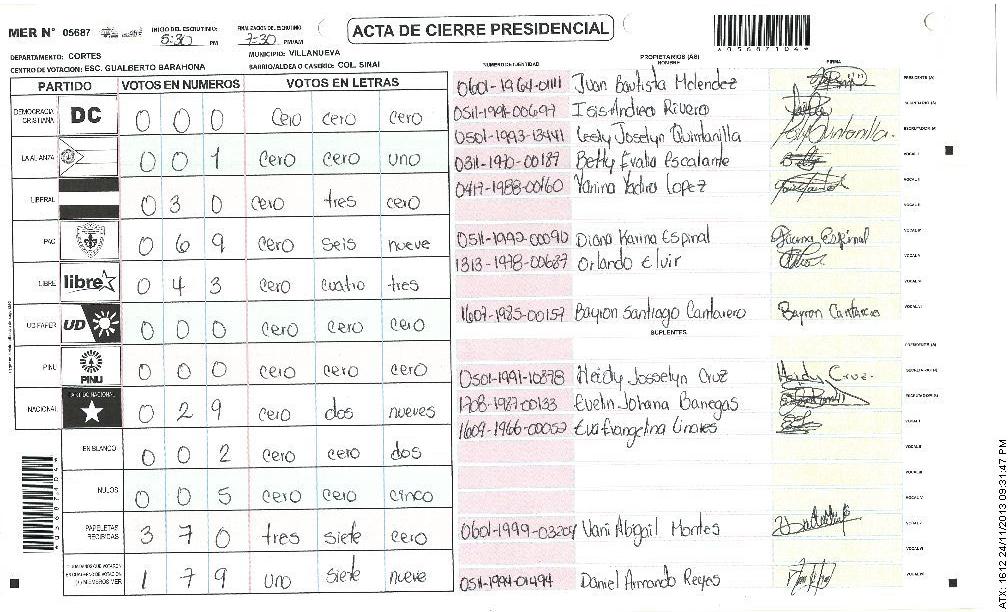 MER N° 05687
INICIO DEL ESCRUTINIO: 5:30 PM
FINALIZACION DEL ESCRUTINIO: 7:30 PM/AM
ACTA DE CIERRE PRESIDENCIAL
DEPARTAMENTO: CORTES
MUNICIPIO: VILLANUEVA
CENTRO DE VOTACION: ESC. GUALBERTO BARAHONA
BARRIO/ALDEA O CASERIO: COL. SINAI
PARTIDO VOTOS EN NUMEROS VOTOS EN LETRAS
DEMOCRACIA CRISTIANA DC 0 0 0 cero cero cero
LA ALIANZA 0 0 1 cero cero uno
LIBERAL 0 3 0 cero tres cero
PAC 0 6 9 cero seis nueve
LIBRE libre 0 4 3 cero cuatro tres
UD FAPER UD 0 0 0 cero cero cero
PINU PINU 0 0 0 cero cero cero
NACIONAL 0 2 9 cero dos nueves
EN BLANCO 0 0 2 cero cero dos
NULOS 0 0 5 cero cero cinco
PAPELETAS RECIBIDAS 3 7 0 tres siete cero
1 7 9 uno siete nueve
NUMERO DE IDENTIDAD PROPIETARIOS (AS) NOMBRE FIRMA
0601-1964-01411 Juan Bautista Melendez PRESIDENTE (A)
0511-1991-00697 Isis Andrea Rivera SECRETARIO (A)
0501-1993-13441 Lesly Joselyn Quintanilla ESCRUTADOR (A)
Betty Evalia Escalante VOCAL I
0417-1988-00160 Yanina Yadira Lopez VOCAL II
0511-1992-00090 Diana Karina Espinal Diana Espinal
1313-1978-00687 Orlando Elvir
1607-1985-00157 Bayron Santiago Cantarero Bayron
SUPLENTES
0501-1991-10878 Heidy Josselyn Cruz Heidy Cruz
1708-1987-00133 Evelin Johana Banegas
1609-1966-00052 Eva Evangelina Linares
0601-1999-03204 Vani Abigail Montes
0511-1994-01494 Daniel Armando Reyes
ATX: 1612 24/11/2013 09:31:47 PM